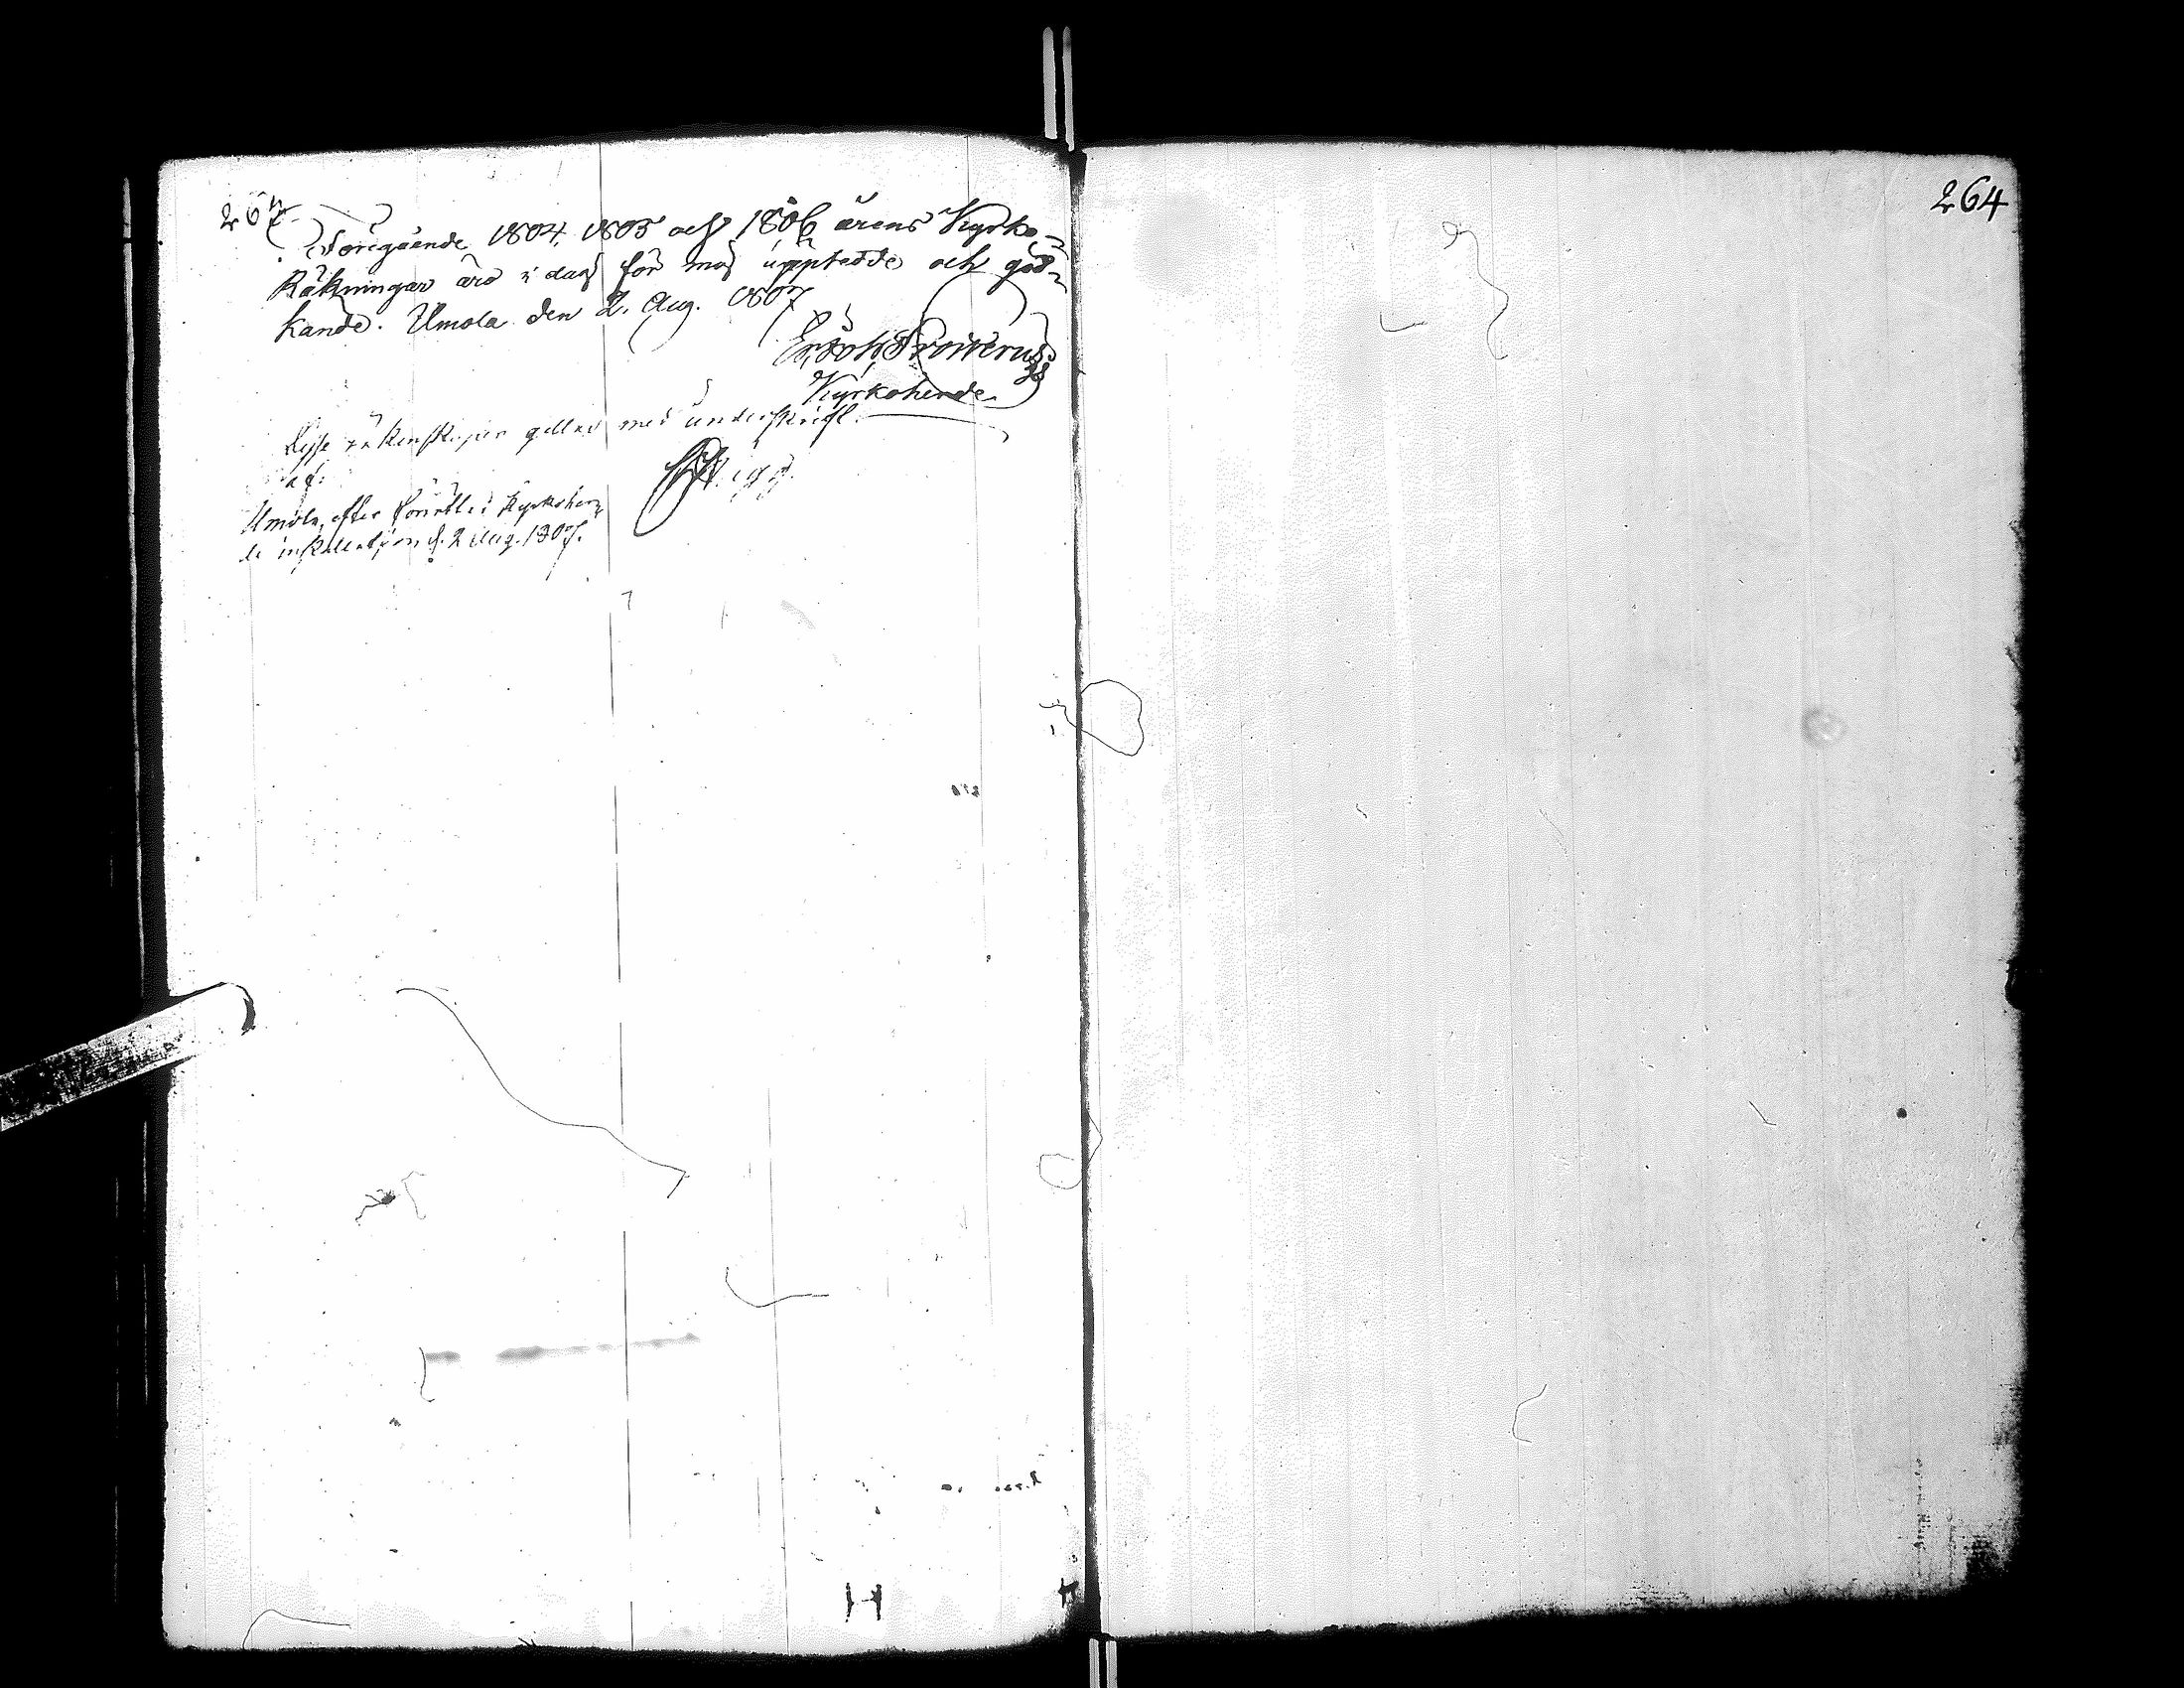 264
Föregående 1804, 1805 och 1806 årens Kyrko-
Räkningar äro i dag för mig upptedde och god-
kände. Umola den 2. Aug. 1807
Kyrkoherde
Desse räkenskaper gillas med underskrift
af:
Umola, efter förrättad Kyrkoher-
de installation d. 2 Aug. 1807.
264